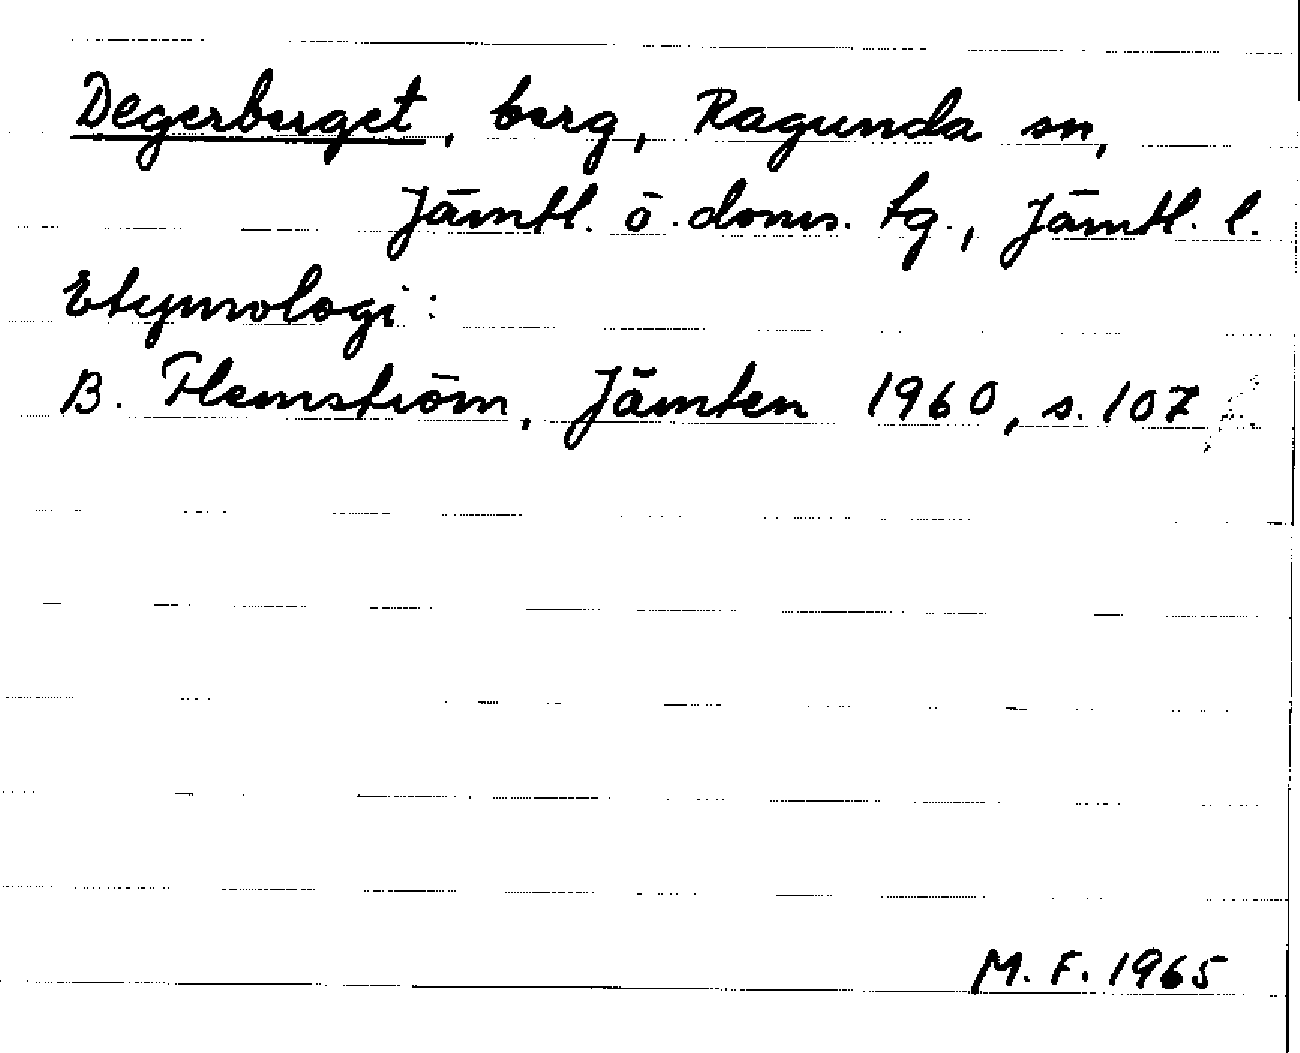 Degerberget, berg, Ragunda sn,
Jämtl. ö. doms. tg., Jämtl. l.
Etymologi:
B. Flemström, Jämten 1960, s. 107
M. F. 1965